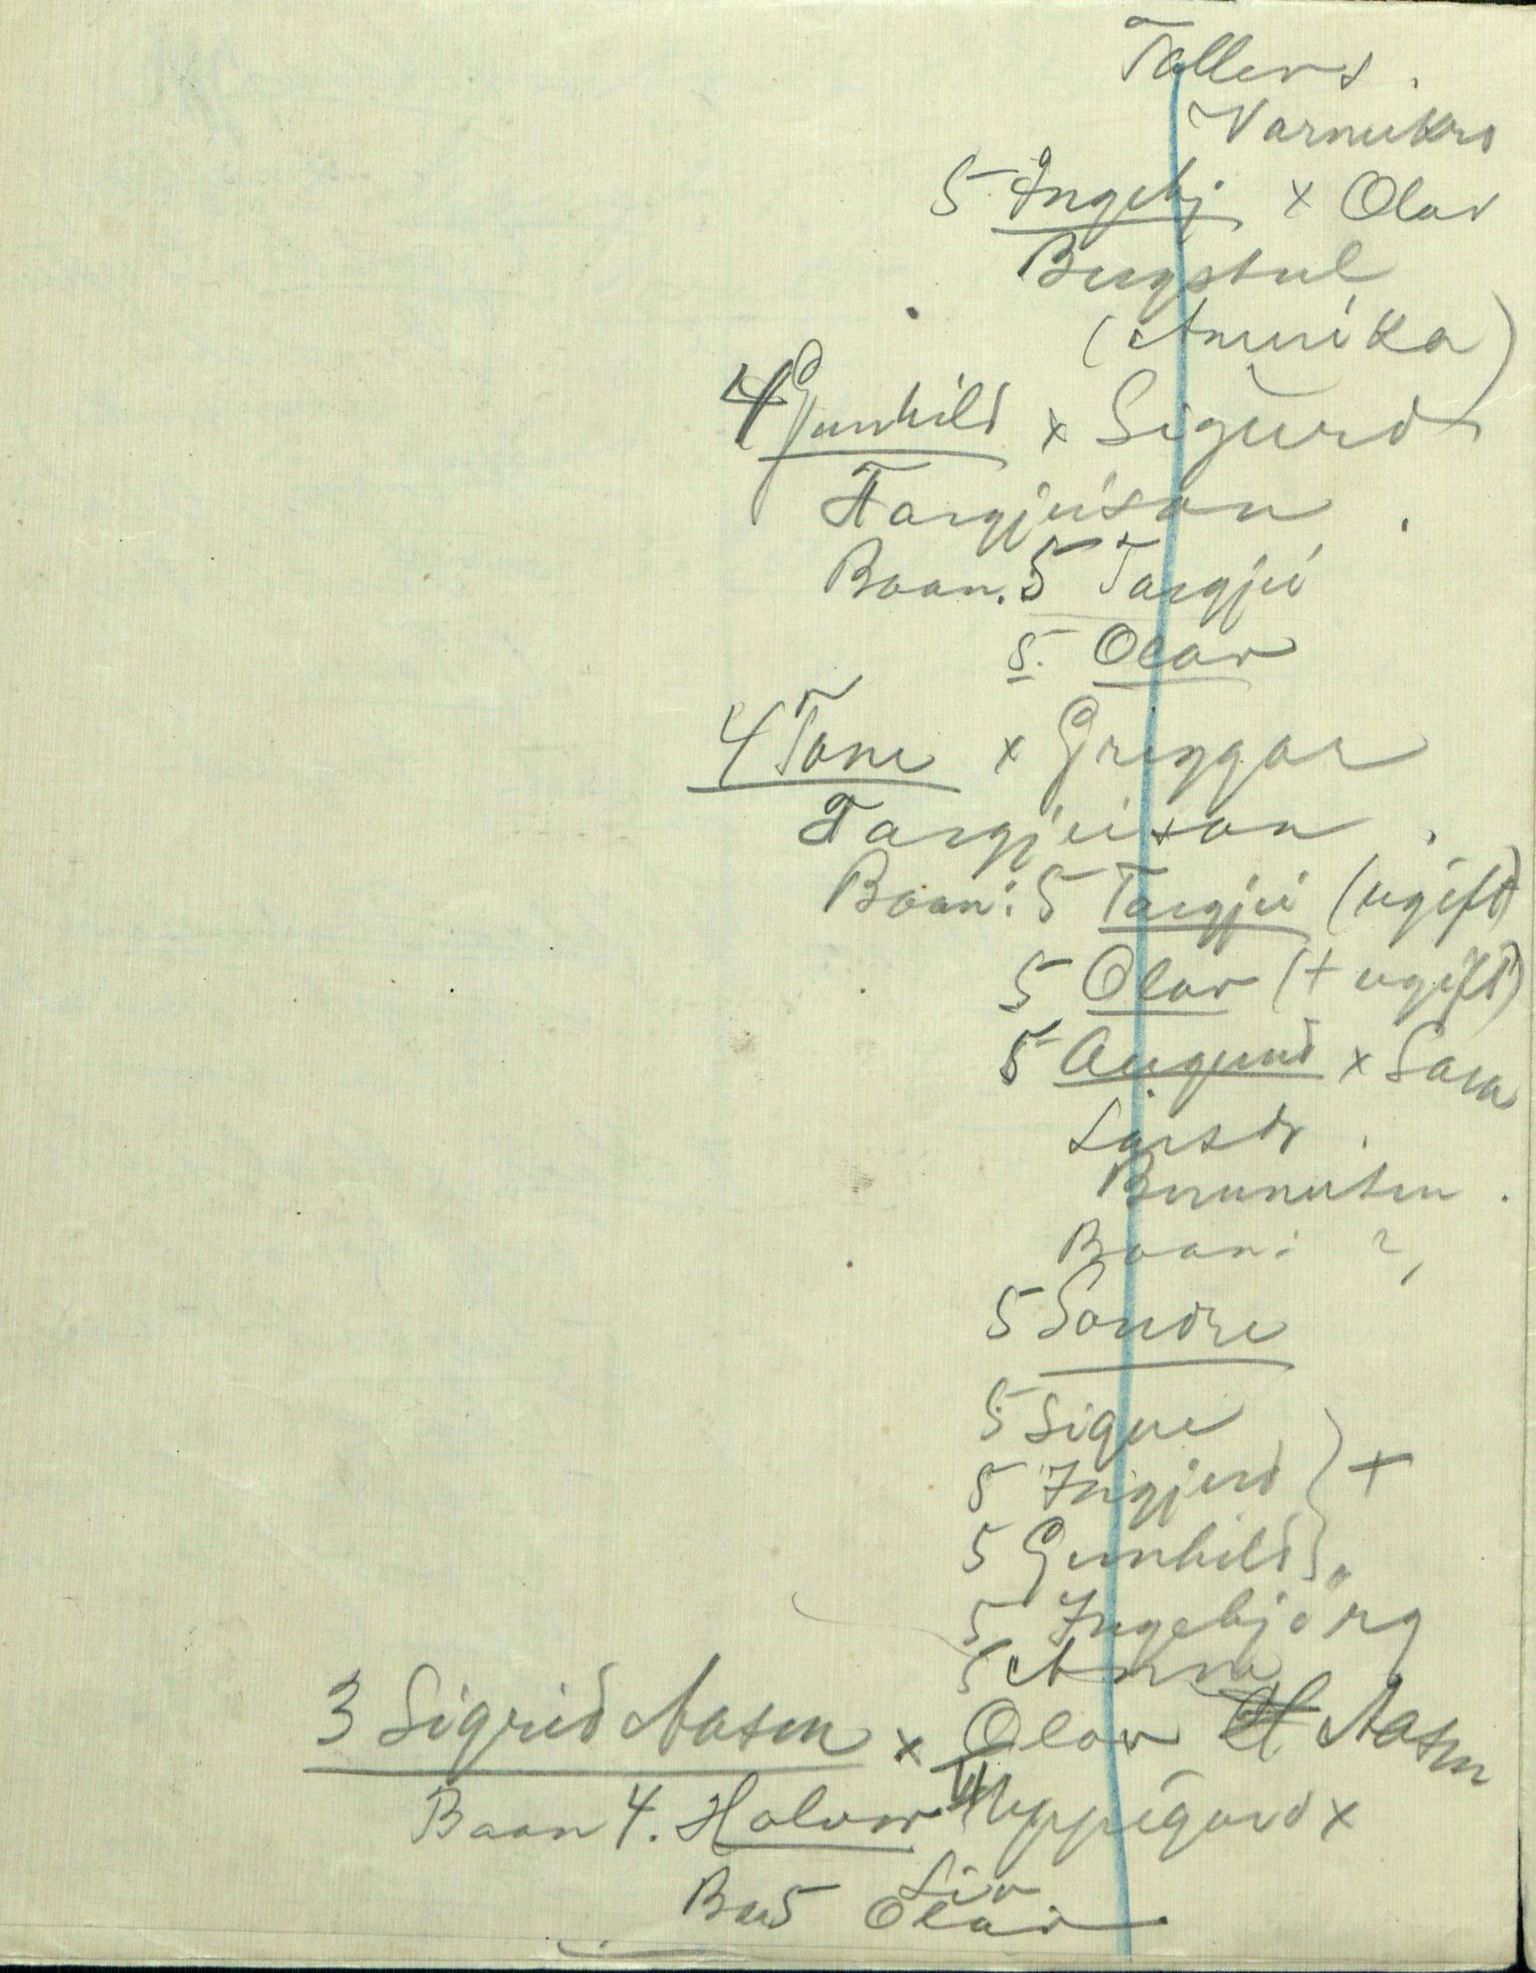 Tallers.
5 Ingebj x Olav
Bergstul
(Amerika)
4 Gunhild x Sigurd
Targjeison.
Baan. 5 Targjei
5. Olav
4 Tone x Greggar
Targjeison.
Baan: 5 Targjei (ugift)
5 Olav (+ ugift)
5 Augund x Sara
Larsdr.
Baan: ?,
5 Sondre
5 Signe
5 Ingjerd } +
5 Gunhild "
5 Ingebjørg
5 Anna
3 Sigrid Aasen x Olav Aasen
Baan 4. Halvor Uppigard x
Liv
Ba 5 Olav